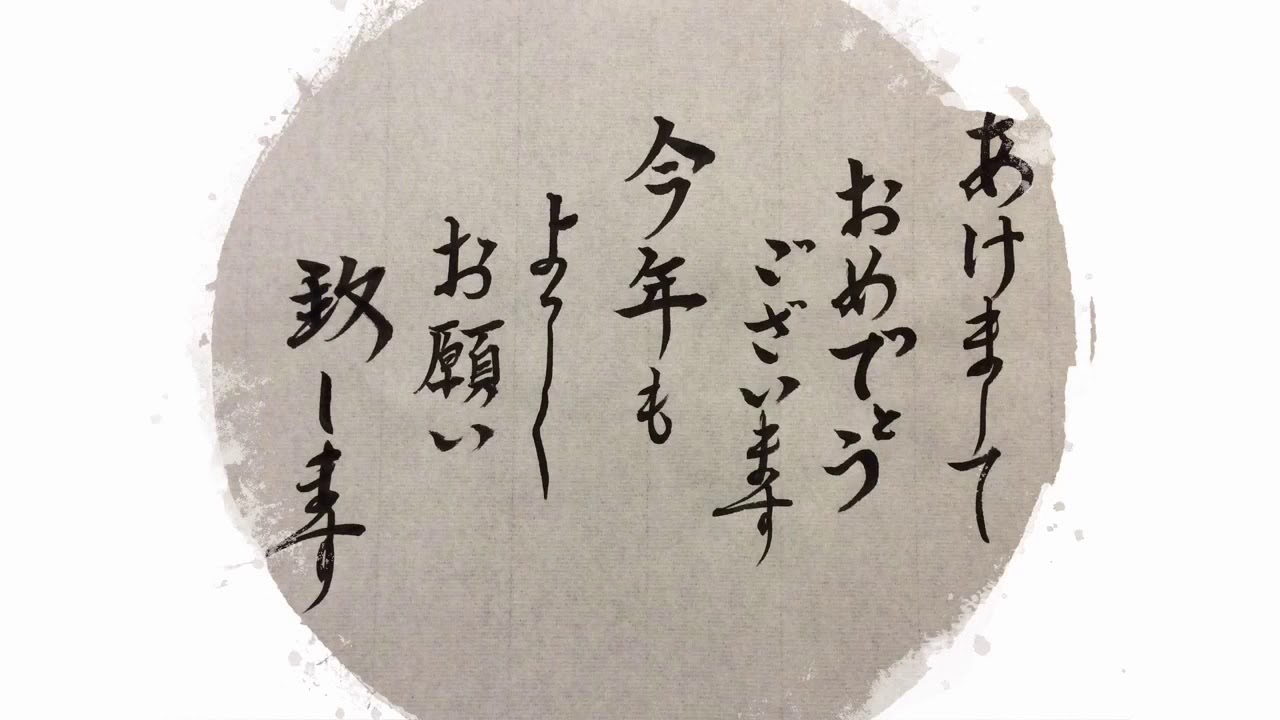 あけまして
おめでとう
ございます
今年も
よろしく
お願い
致します